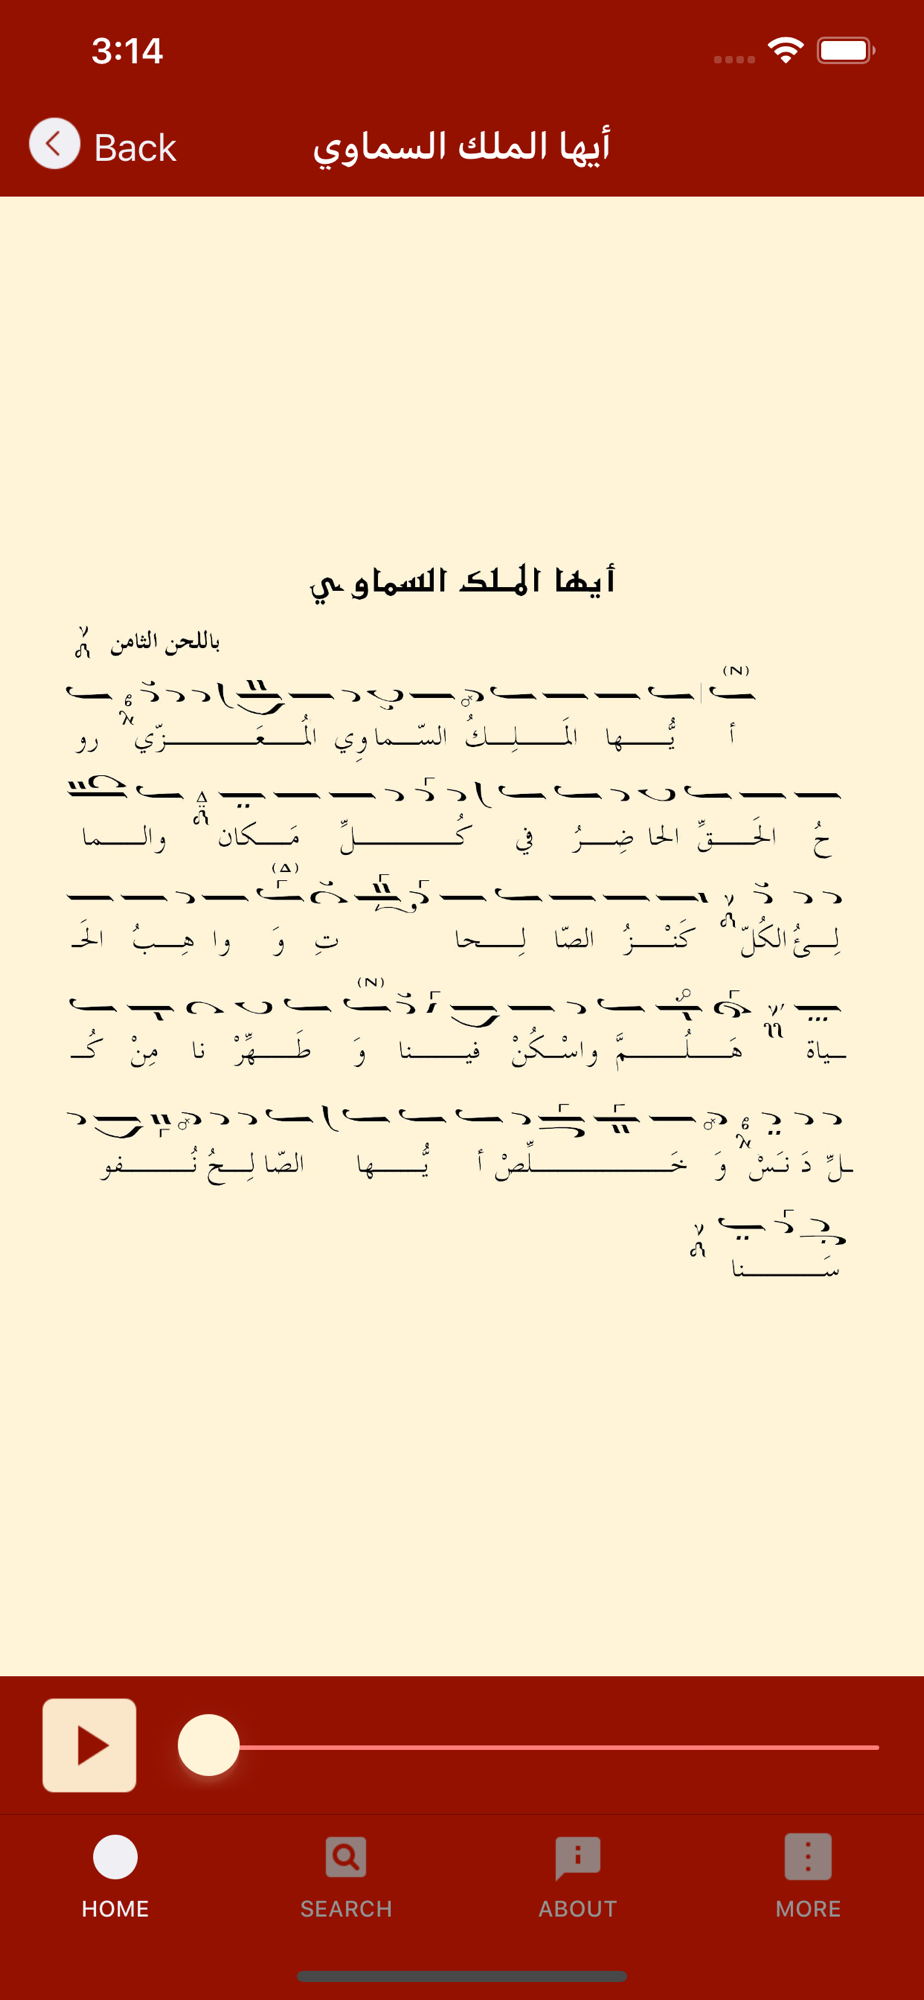 3:14
Back
أيها الملك السماوي
أيها الملك السماوي
باللحن الثامن
(N)
أ يُّــــها المَــــلِــــكُ السّــــماوِي المُــــعَــــــــزّي رو
حُ الحَــــقِّ الحا ضِــــرُ في كُــــــــلِّ مَــــكان والــــما
(Δ)
لِــــئُ الكُلّ كَنْــــزُ الصّا لِــــحا تِ وَ وا هِــــبُ الحَـ
(N)
ـياة هَــــلُــــــــمَّ واسْــــكُنْ فيــــنا وَ طَــــهِّرْ نا مِنْ كُـ
ـلِّ دَ نَــسْ وَ خَــــــــلِّصْ أ يُّــــها الصّا لِــــحُ نُــــفو
سَــــــــنا
HOME SEARCH ABOUT MORE